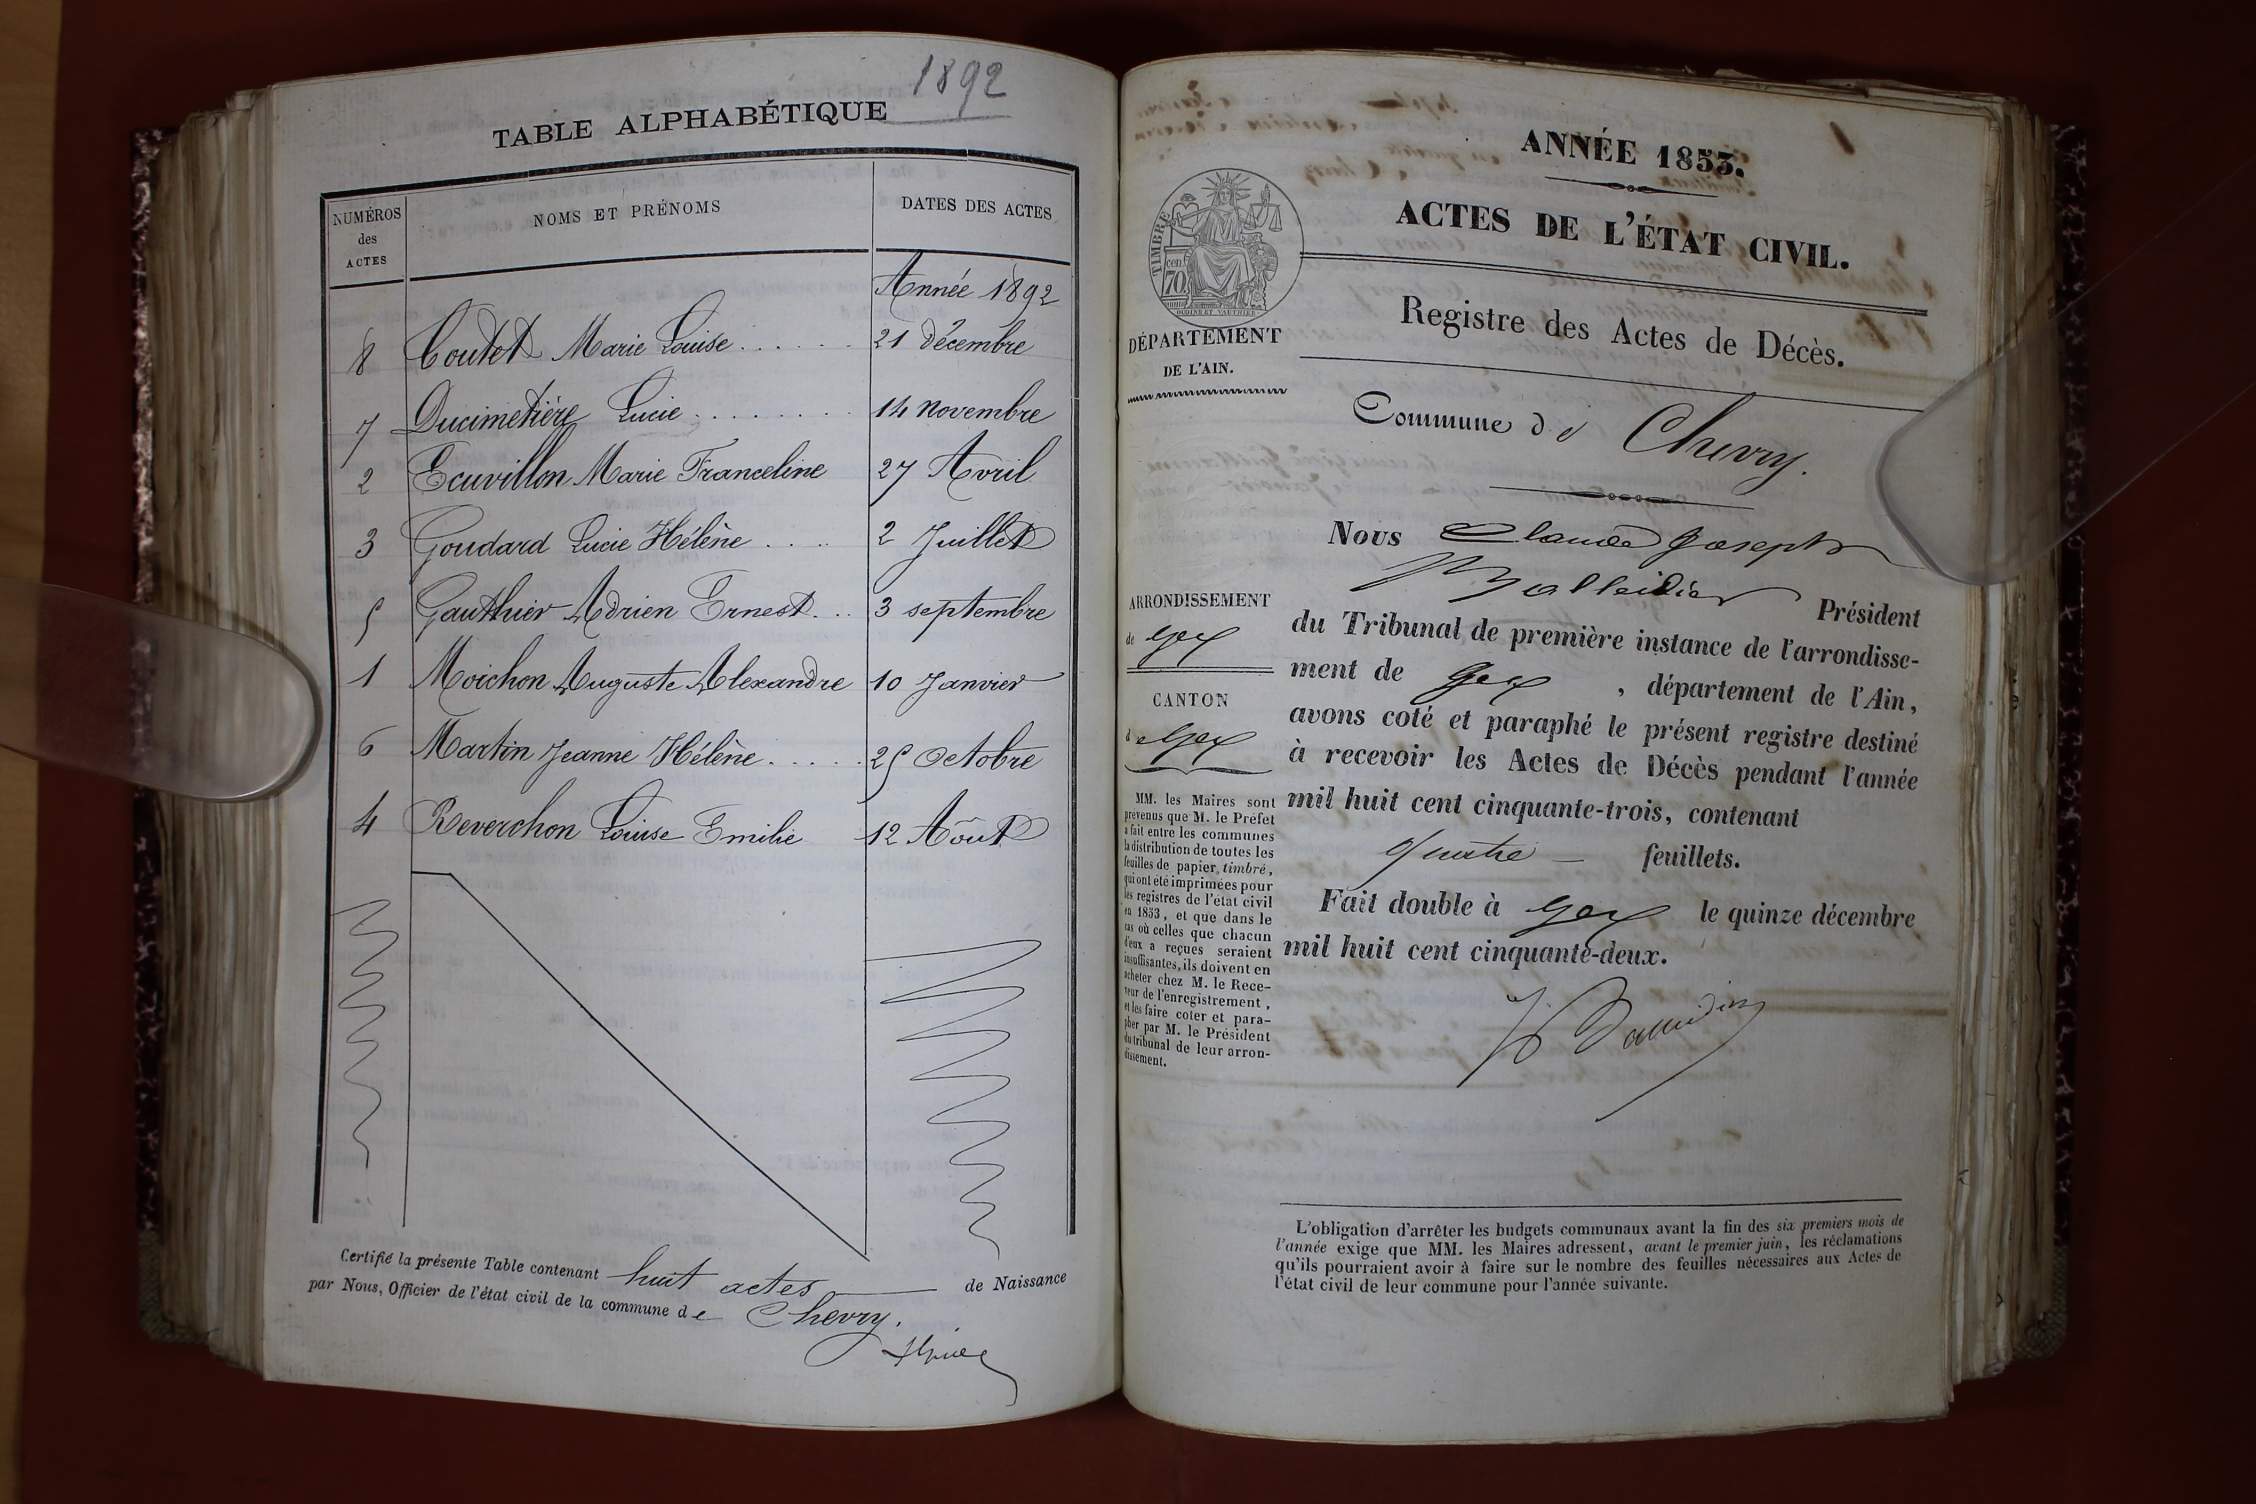 1892
TABLE ALPHABÉTIQUE
NUMÉROS des ACTES
NOMS ET PRÉNOMS
DATES DES ACTES
Année 1892
8 Coutet Marie Louise 21 décembre
7 Ducimetière Lucie 14 novembre
2 Ecuvillon Marie Franceline 27 Avril
3 Goudard Lucie Hélène 2 Juillet
5 Gauthier Adrien Ernest 3 septembre
1 Moichon Auguste Alexandre 10 Janvier
6 Martin Jeanne Hélène 25 Octobre
4 Reverchon Louise Emilie 12 Août
Certifié la présente Table contenant huit actes de Naissance
par Nous, Officier de l'état civil de la commune de Chevry.
ANNÉE 1853.
ACTES DE L'ÉTAT CIVIL.
TIMBRE
70 cen
OUDINE ET VAUTHIER
Registre des Actes de Décès.
DÉPARTEMENT
DE L'AIN.
Commune de Chevry.
ARRONDISSEMENT
de Gex
CANTON
de Gex
MM. les Maires sont
prévenus que M. le Préfet
a fait entre les communes
la distribution de toutes les
feuilles de papier timbré,
qui ont été imprimées pour
les registres de l'état civil
en 1853, et que dans le
cas où celles que chacun
d'eux a reçues seraient
insuffisantes, ils doivent en
acheter chez M. le Rece-
veur de l'enregistrement,
et les faire coter et para-
pher par M. le Président
du tribunal de leur arron-
dissement.
Nous Claude Joseph
Balleidier Président
du Tribunal de première instance de l'arrondisse-
ment de Gex, département de l'Ain,
avons coté et paraphé le présent registre destiné
à recevoir les Actes de Décès pendant l'année
mil huit cent cinquante-trois, contenant
quatre feuillets.
Fait double à Gex le quinze décembre
mil huit cent cinquante-deux.
L'obligation d'arrêter les budgets communaux avant la fin des six premiers mois de
l'année exige que MM. les Maires adressent, avant le premier juin, les réclamations
qu'ils pourraient avoir à faire sur le nombre des feuilles nécessaires aux Actes de
l'état civil de leur commune pour l'année suivante.